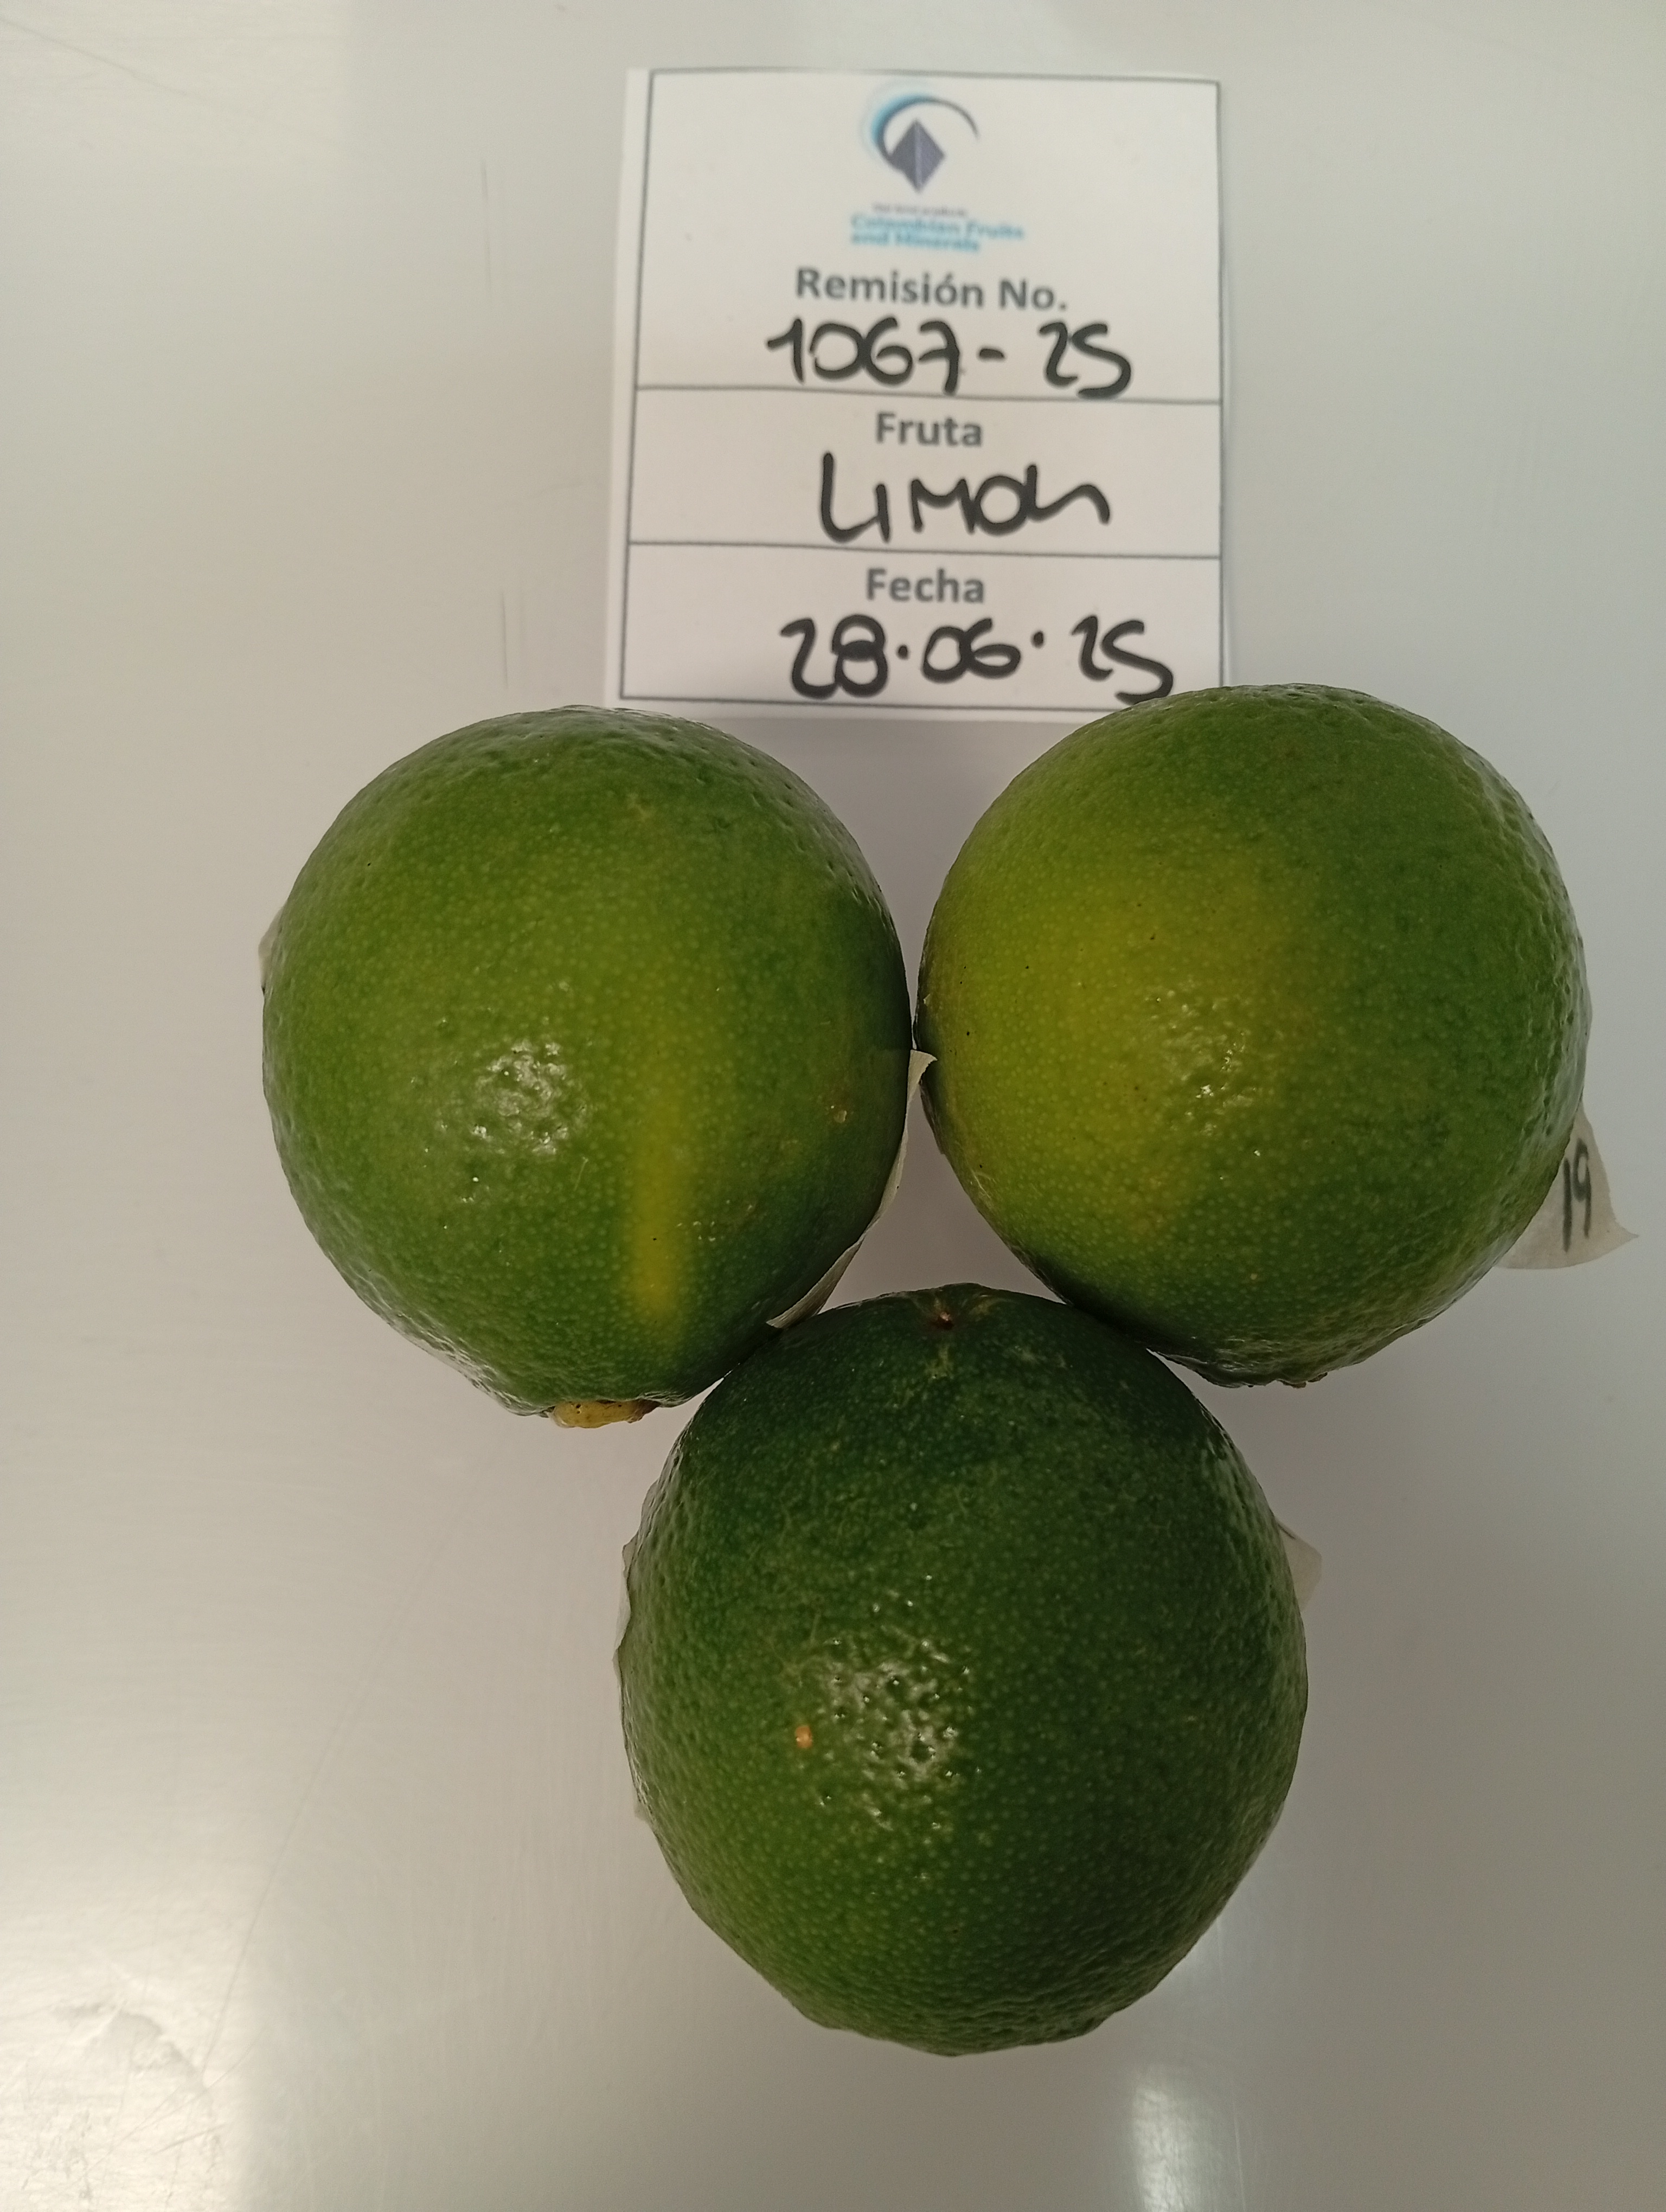 Colombian Fruits
and Minerals
Remisión No.
1067-25
Fruta
LIMON
Fecha
28.06.25
19